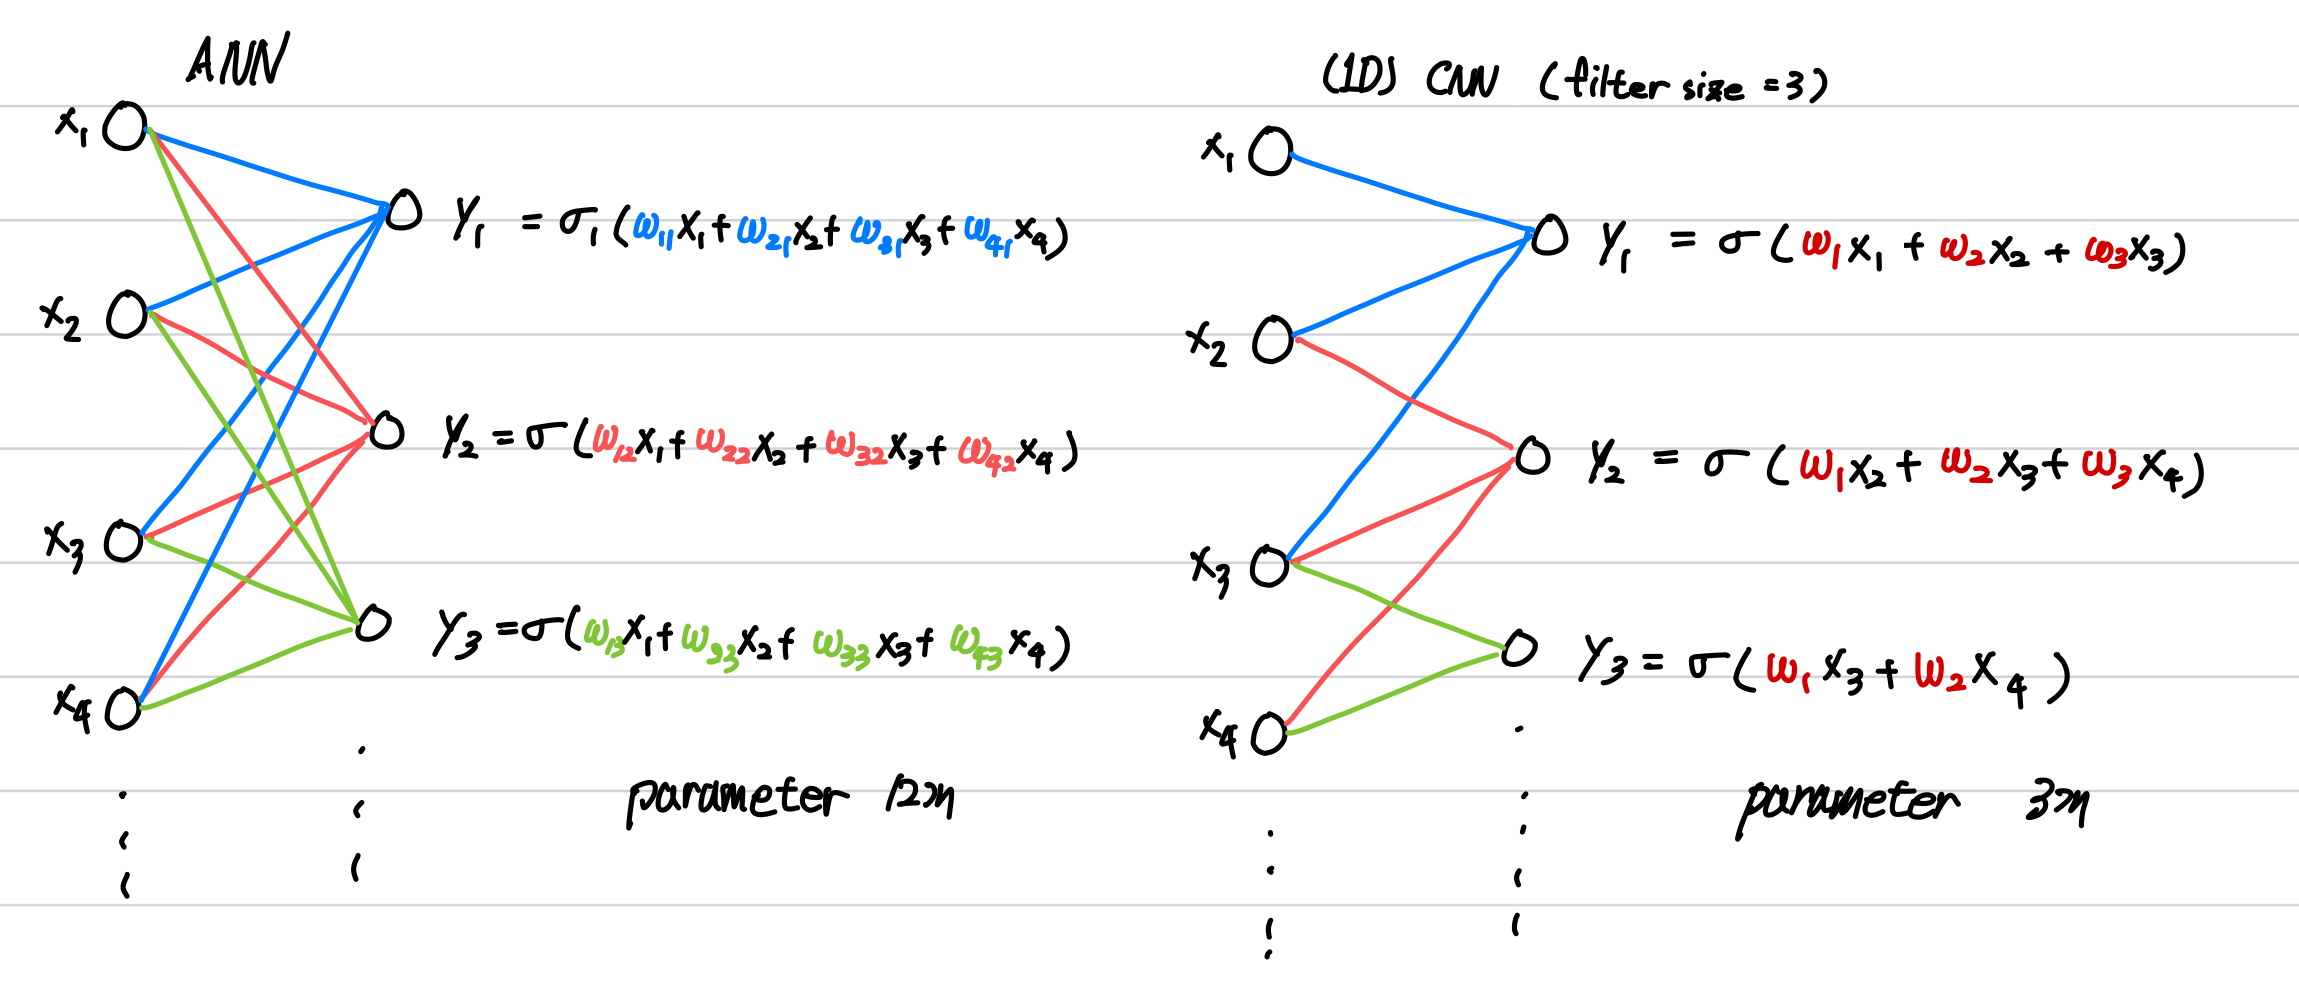 ANN
x₁
Y₁ = σ₁(ω₁₁x₁+ω₂₁x₂+ω₃₁x₃+ω₄₁x₄)
x₂
Y₂ = σ(ω₁₂x₁+ω₂₂x₂+ω₃₂x₃+ω₄₂x₄)
x₃
Y₃ = σ(ω₁₃x₁+ω₂₃x₂+ω₃₃x₃+ω₄₃x₄)
x₄
parameter 12개
(1D) CNN (filter size = 3)
x₁
Y₁ = σ(ω₁x₁ + ω₂x₂ + ω₃x₃)
x₂
Y₂ = σ(ω₁x₂ + ω₂x₃ + ω₃x₄)
x₃
Y₃ = σ(ω₁x₃ + ω₂x₄)
x₄
parameter 3개